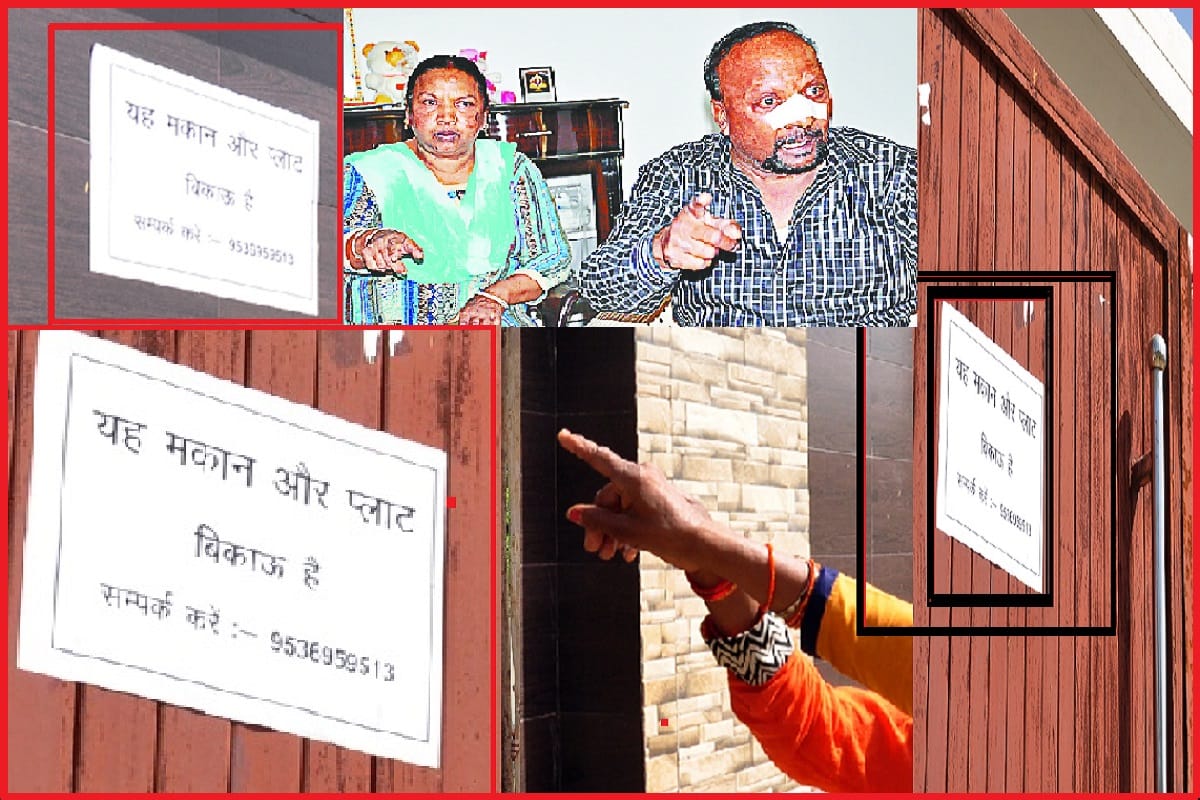 यह मकान और प्लाट
बिकाऊ है
सम्पर्क करें :- 9536959513
यह मकान और प्लाट
बिकाऊ है
सम्पर्क करें :- 9536959513
यह मकान और प्लाट
बिकाऊ है
सम्पर्क करें :-